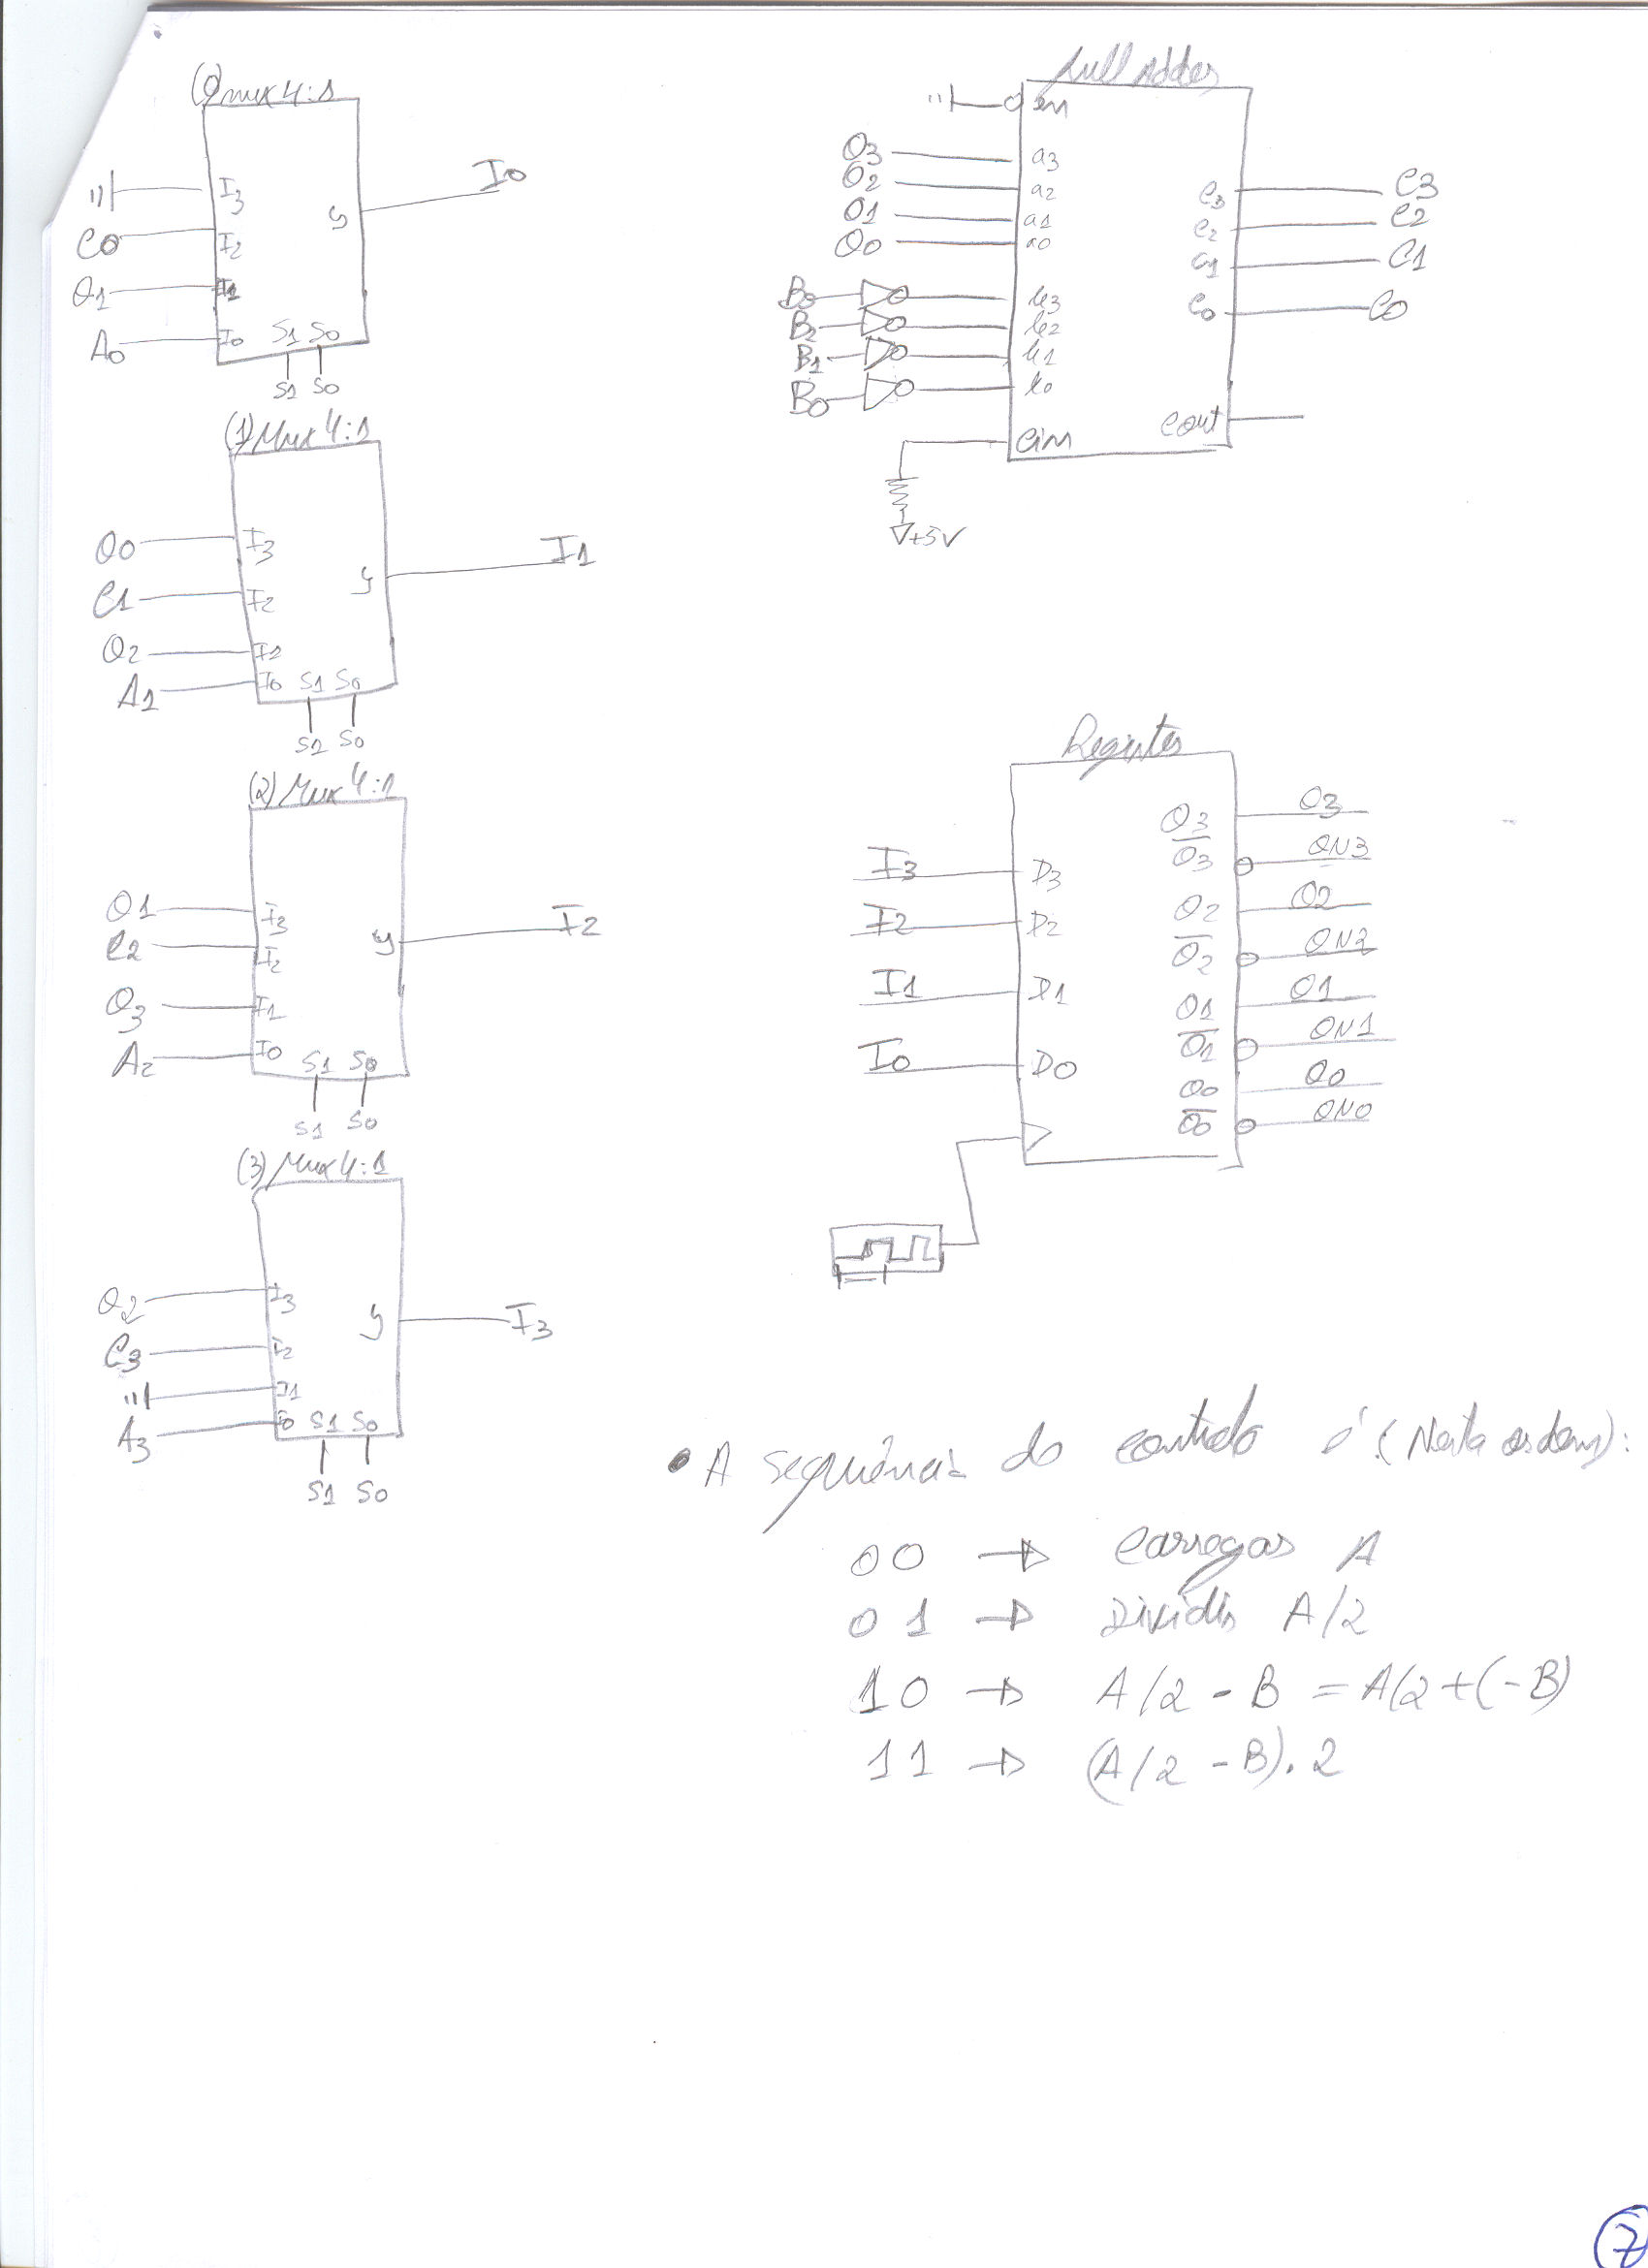 (0) mux 4:1
I3
C0
I2
Q1
I1
A0
I0
y
I0
S1 S0
S1 S0
(1) Mux 4:1
Q0
I3
C1
I2
Q2
I1
A1
I0
y
I1
S1 S0
S1 S0
(2) Mux 4:1
Q1
I3
C2
I2
Q3
I1
A2
I0
y
I2
S1 S0
S1 S0
(3) Mux 4:1
Q2
I3
C3
I2
I1
A3
I0
y
I3
S1 S0
S1 S0
Full Adder
en
Q3 a3
Q2 a2
Q1 a1
Q0 a0
b3
B2 b2
B1 b1
B0 b0
Cin
+5V
C3 C3
C2 C2
C1 C1
C0 C0
Cout
Register
I3 D3
I2 D2
I1 D1
I0 D0
Q3 Q3
Q̅3 QN3
Q2 Q2
Q̅2 QN2
Q1 Q1
Q̅1 QN1
Q0 Q0
Q̅0 QN0
• A sequência do controlo é (Nesta ordem):
00 → Carregar A
01 → Dividir A/2
10 → A/2 - B = A/2 + (-B)
11 → (A/2 - B). 2
7